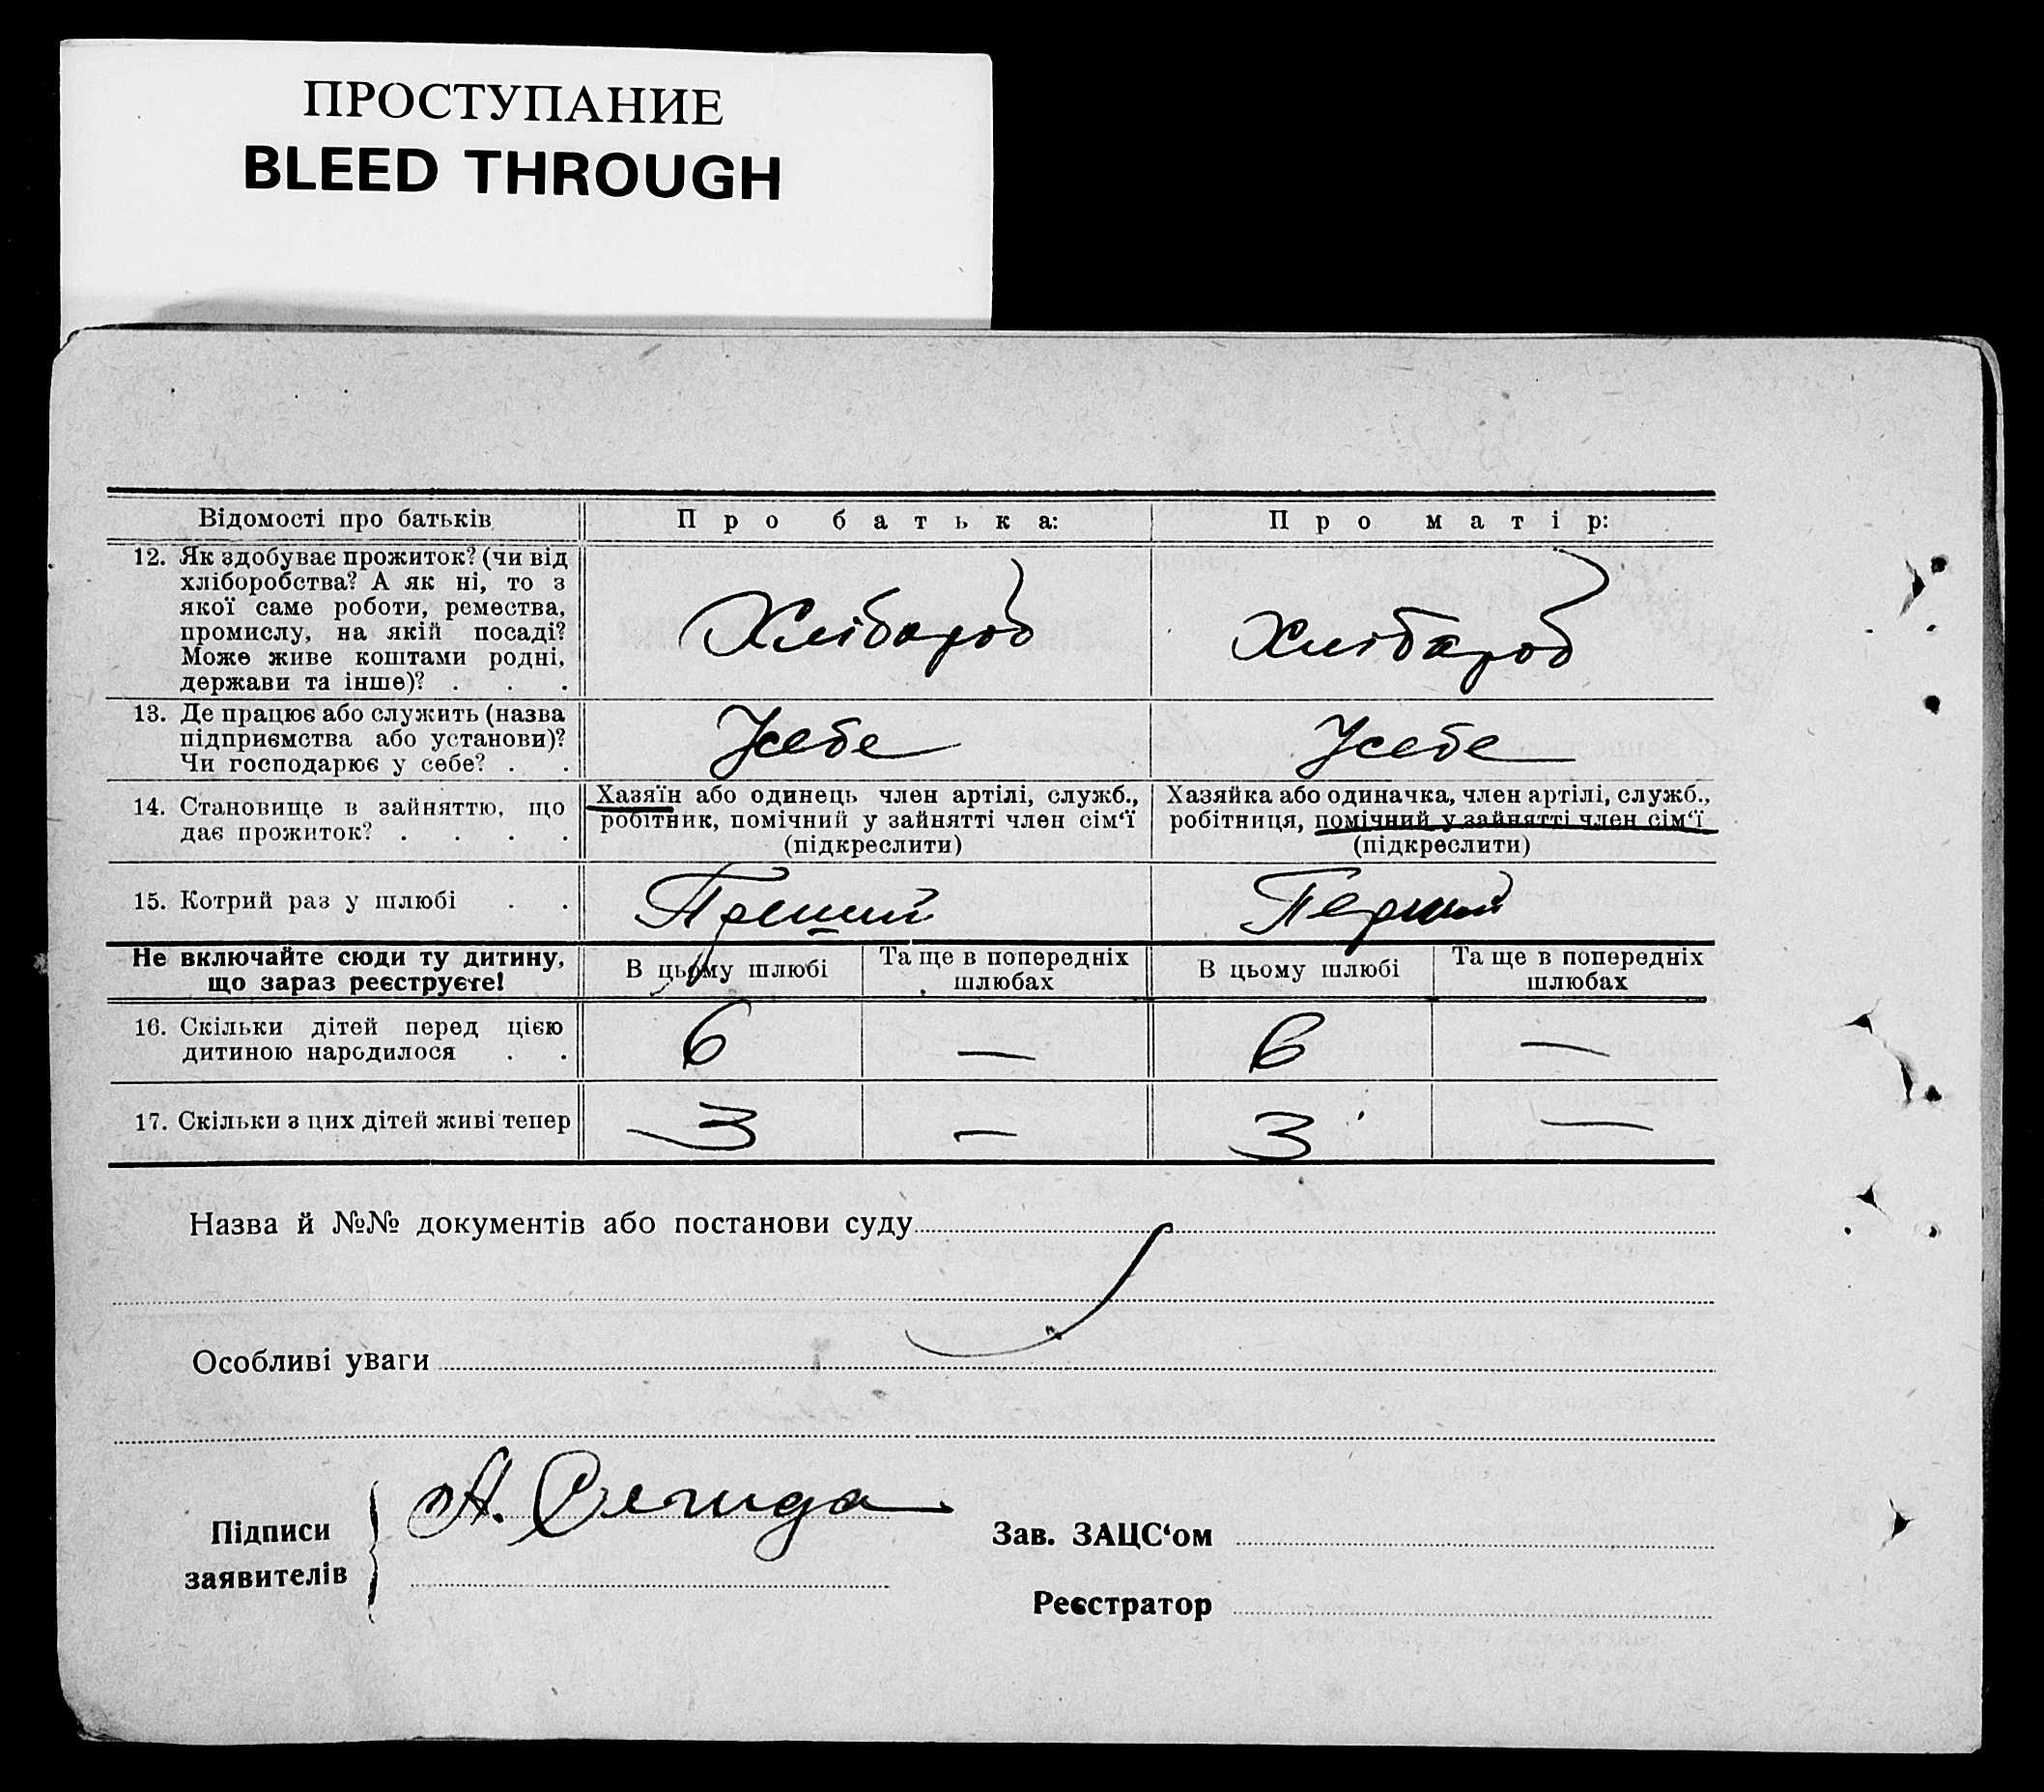 ПРОСТУПАНИЕ
BLEED THROUGH
Відомості про батьків
Про батька:
Про матір:
12. Як здобуває прожиток? (чи від
хліборобства? А як ні, то з
якої саме роботи, ремества,
промислу, на якій посаді?
Може живе коштами родні,
держави та інше)? . . .
Хлібороб
Хлібороб
13. Де працює або служить (назва
підприємства або установи)?
Чи господарює у себе? . .
Усебе
Усебе
14. Становище в зайняттю, що
дає прожиток? . . . .
Хазяїн або одинець член артілі, служб.,
робітник, помічний у зайнятті член сім‘ї
(підкреслити)
Хазяйка або одиначка, член артілі, служб.,
робітниця, помічний у зайнятті член сім‘ї
(підкреслити)
15. Котрий раз у шлюбі . .
Перший
Не включайте сюди ту дитину,
що зараз реєструєте!
В цьому шлюбі
Та ще в попередніх
шлюбах
В цьому шлюбі
Та ще в попередніх
шлюбах
16. Скільки дітей перед цією
дитиною народилося . .
6 — 6 —
17. Скільки з цих дітей живі тепер
3 — 3 —
Назва й №№ документів або постанови суду
Особливі уваги
Підписи
заявителів
А.
Зав. ЗАЦС‘ом
Реєстратор